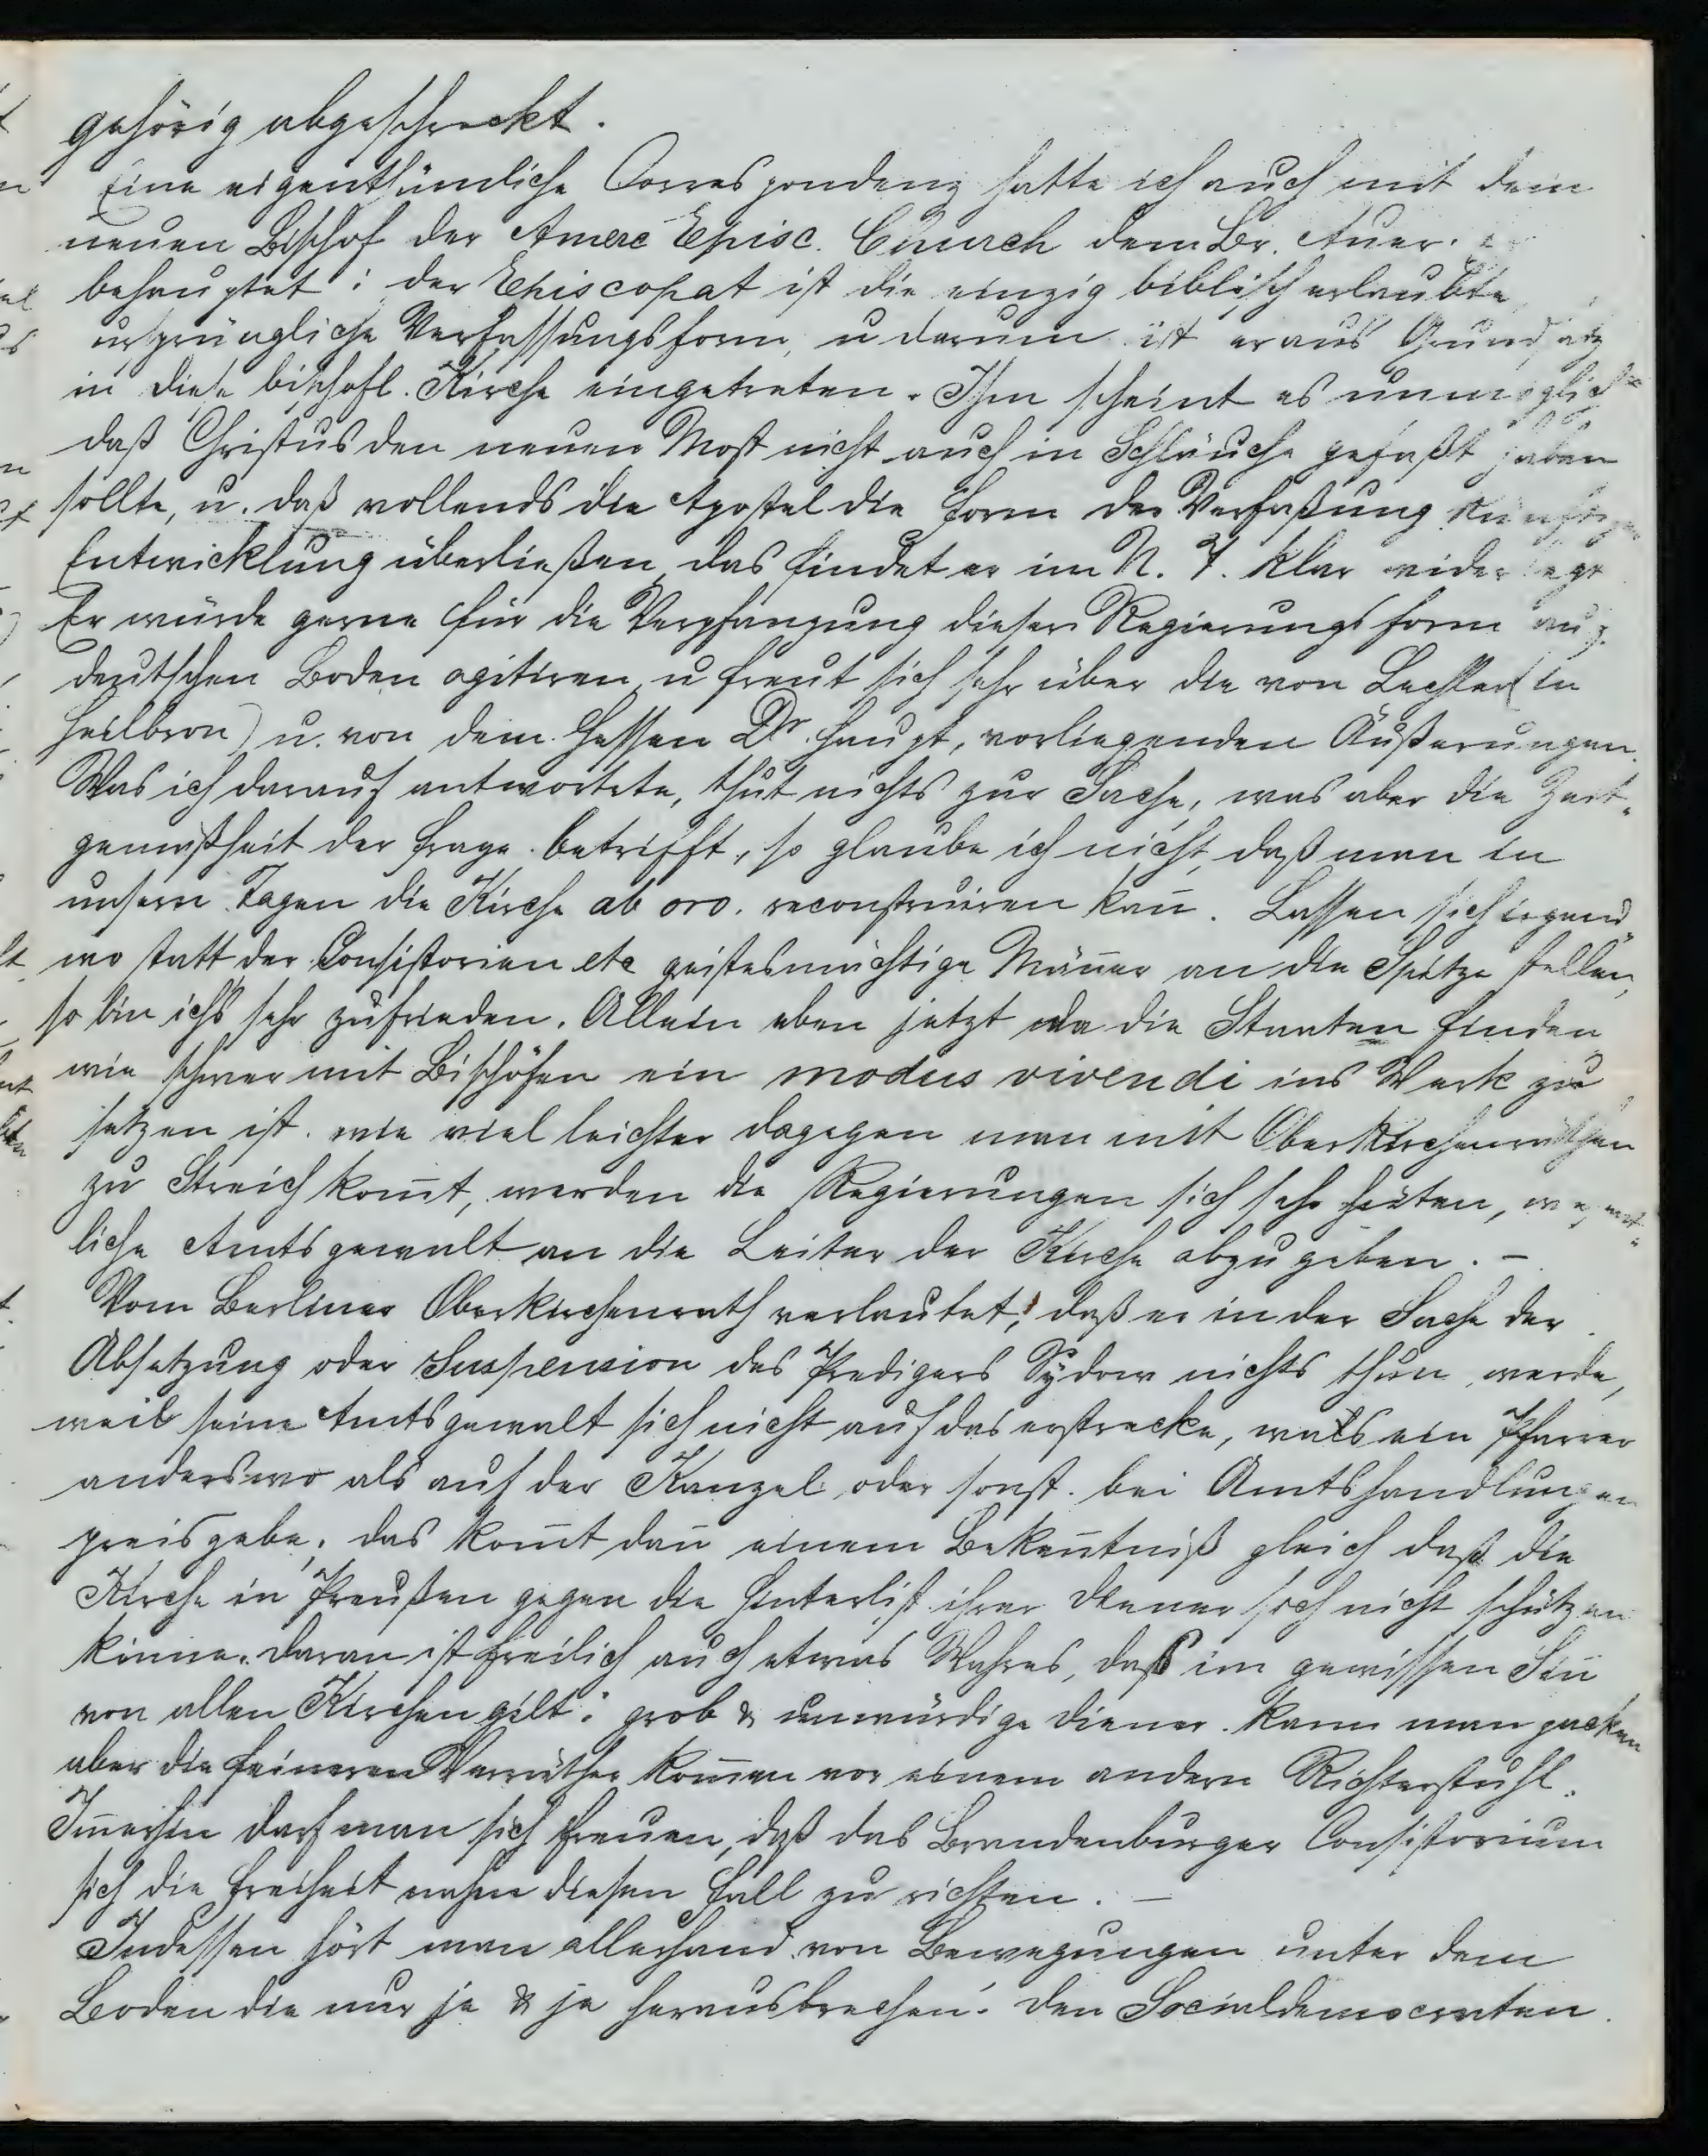 gehörig abgeschreckt.
Eine eigenthümliche Correspondenz hatte ich auch mit dem
neuen Bischof der Amerc Episc. Church dem Br. Auer.
behauptet: der Episcopat ist die einzig biblisch erlaubte
ursprüngliche Verfassungsform, u darum ist er aus Grundsatz
in diese bischofl. Kirche eingetreten. Ihm scheint es unmöglich
daß Christus den neuen Most nicht auch in Schläuche gefaßt haben
sollte, u. daß vollends die Apostel die Form der Verfaßung künftiger
Entwicklung überließen, das findet er im N. T. klar widerlegt
Er würde gerne für die Verpflanzung dieser Regierungsform auf
deutschen Boden agitiren, u freut sich sehr über die von Lechler (in
Heilbron) u. von dem Hessen Dr. Haupt, vorliegenden Äußerungen.
Was ich darauf antwortete, thut nichts zur Sache, was aber die Zeit-
gemäßheit der Frage betrifft, so glaube ich nicht, daß man in
unsern Tagen die Kirche ab ovo. reconstruiren kan̄. Lassen sich irgend-
wo statt der Consistorien etc geistesmächtige Män̄er an die Spitze stellen,
so bin ichs sehr zufrieden. Allein eben jetzt da die Staaten finden
wie schwer mit Bischöfen ein modus vivendi ins Werk zu
setzen ist. wie viel leichter dagegen man mit Oberkirchenräthen
zu Streich kom̄t, werden die Regierungen sich sehr hüten, wesent-
liche Amtsgewalt an die Leiter der Kirche abzugeben. –
Vom Berliner Oberkirchenrath verlautet, daß er in der Sache der
Absetzung oder Suspension des Predigers Sydow nichts thun werde,
weil seine Amtsgewalt sich nicht auf das erstrecke, was ein Pfarrer
anderswo als auf der Kanzel oder sonst bei Amtshandlungen
preisgebe, das kom̄t dan̄ einem Beken̄tniß gleich daß die
Kirche in Preußen gegen die Hinterlist ihrer Diener sich nicht schützen
könne. Daran ist freilich auch etwas Wahres, daß im gewissen Sin̄
von allen Kirchen gilt: grob & unwürdige Diener kann man packen
aber die feineren Verräther kom̄en vor einem andern Richterstuhl.
Im̄erhin darf man sich freuen, daß das Brandenburger Consistorium
sich die Freiheit nahm diesen Fall zu richten. –
Indessen hört man allerhand von Bewegungen unter dem
Boden die nur je & je herausbrechen. Den Socialdemocraten